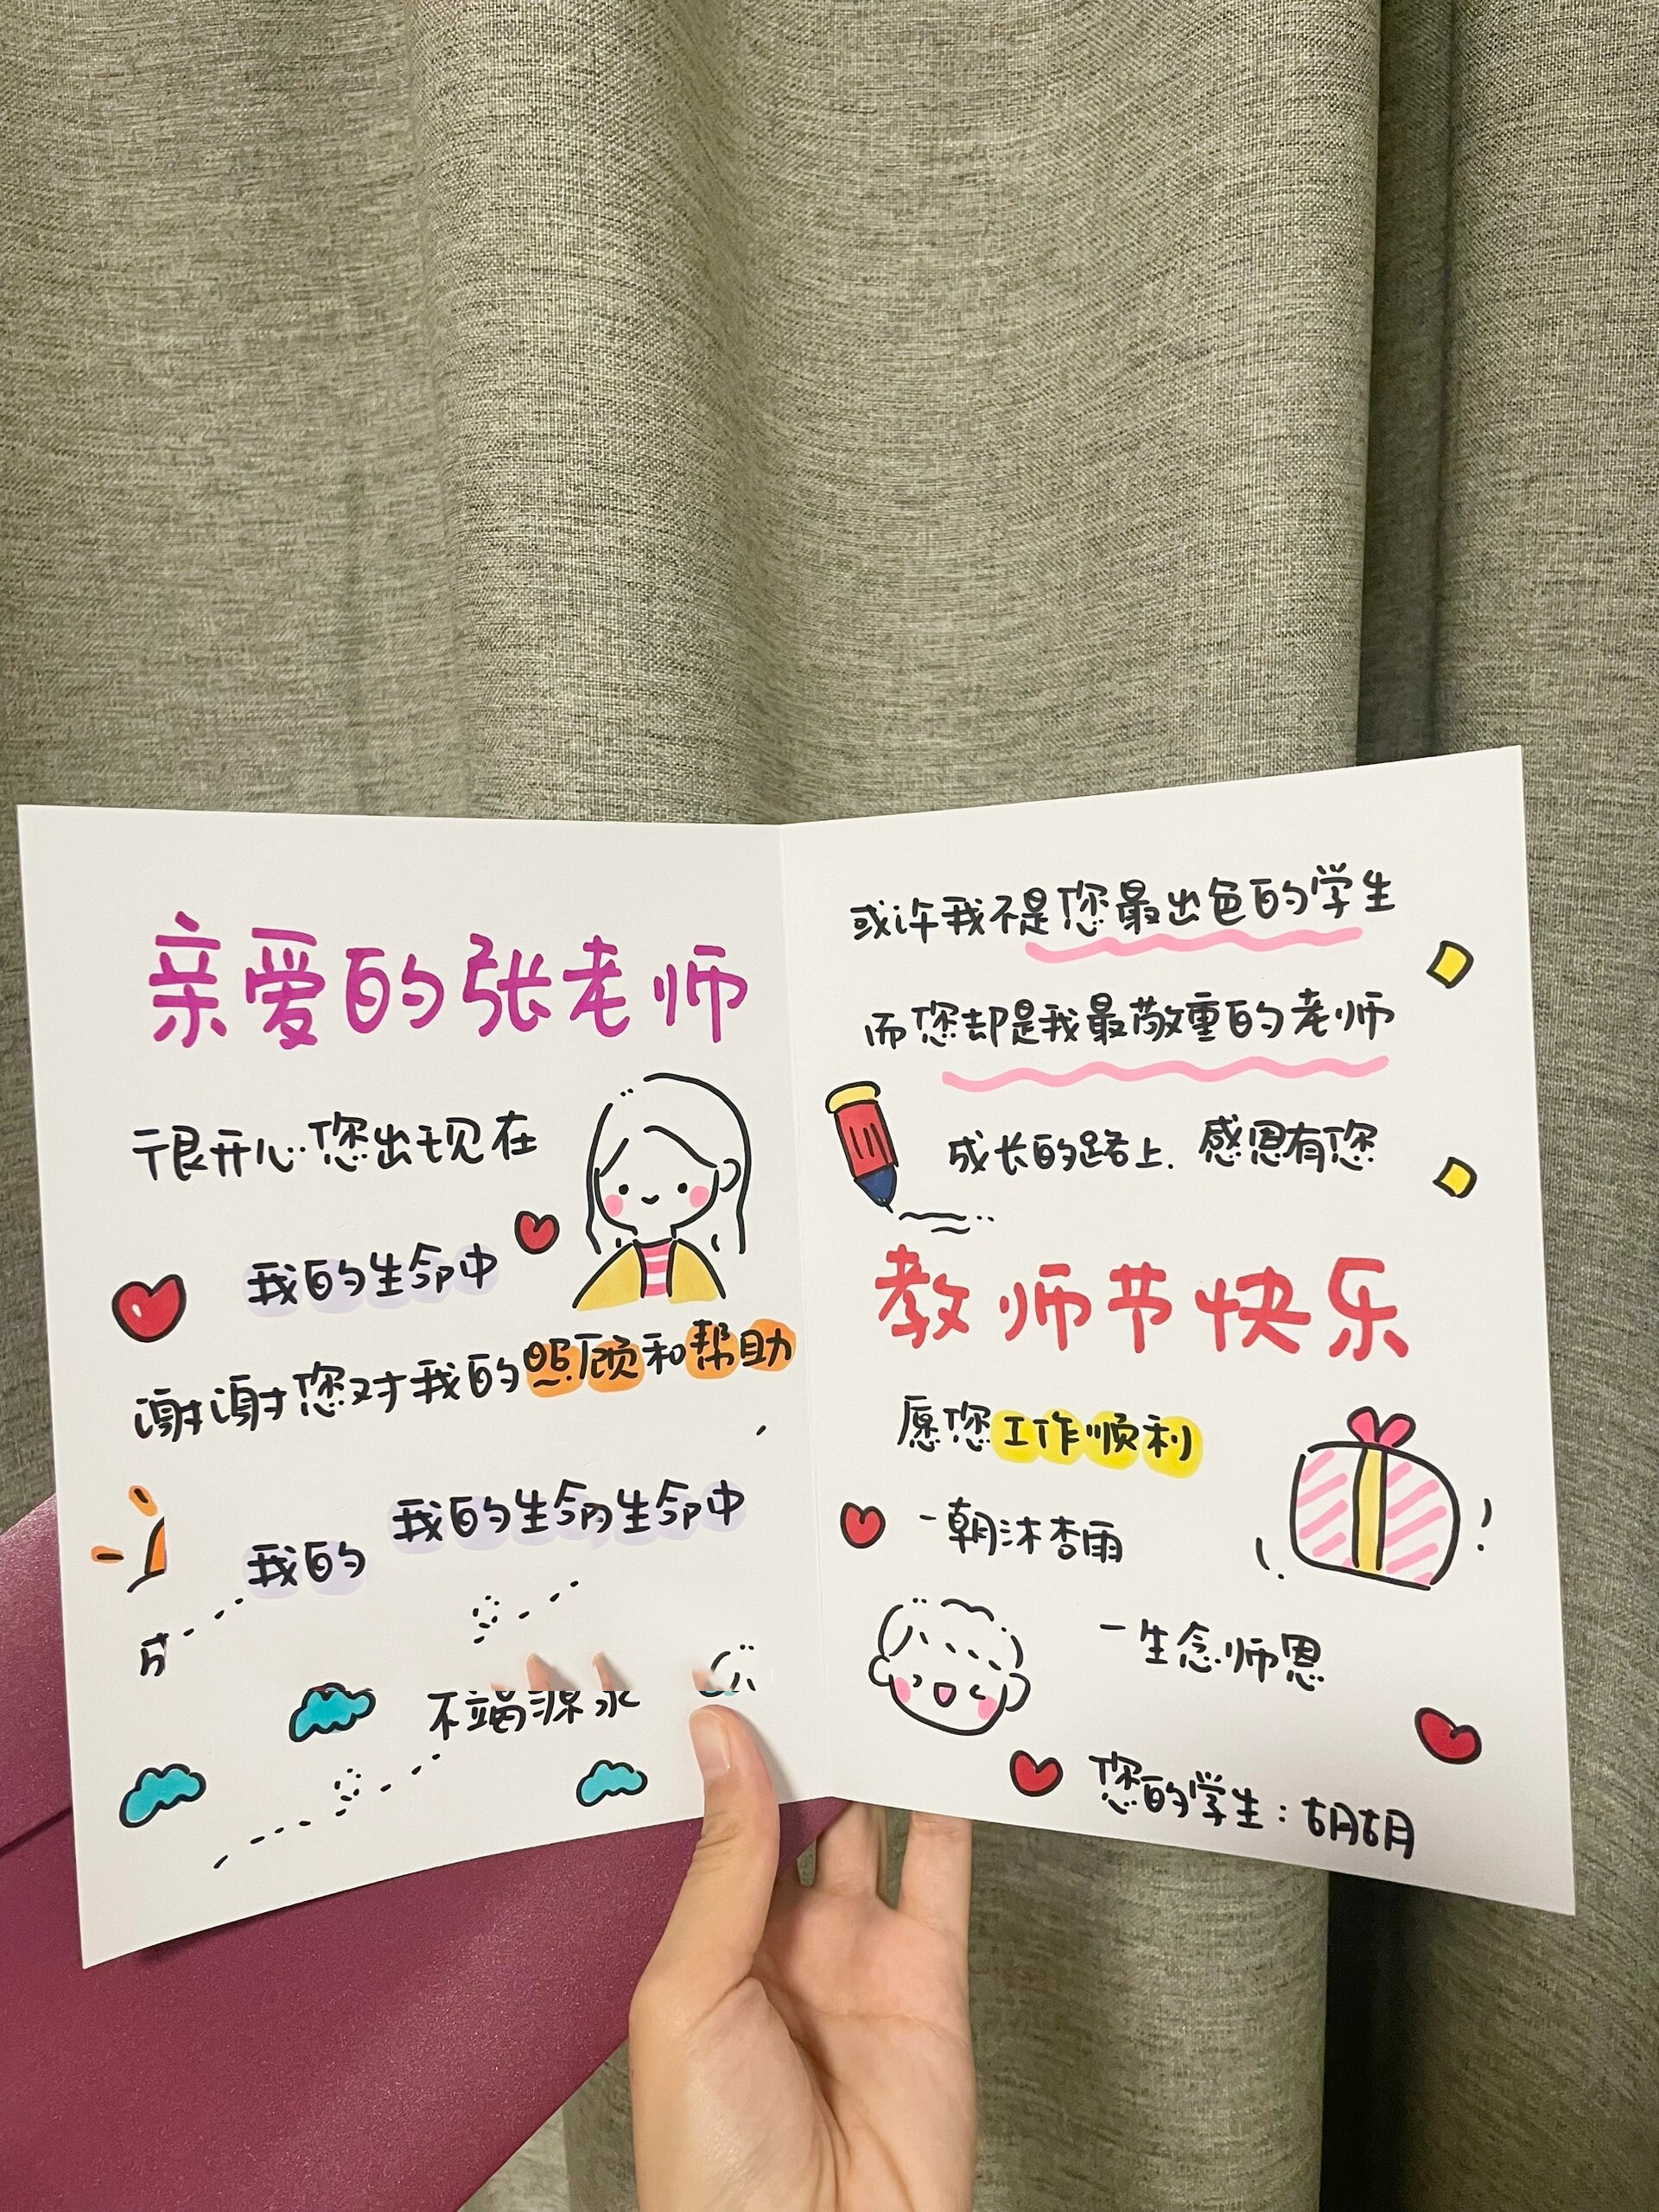 亲爱的张老师
很开心您出现在
我的生命中
谢谢您对我的照顾和帮助
我的生命的生命中
我的
不竭源泉
或许我不是您最出色的学生
而您却是我最敬重的老师
成长的路上.感恩有您
教师节快乐
愿您工作顺利
一朝沐杏雨
一生念师恩
您的学生：胡胡